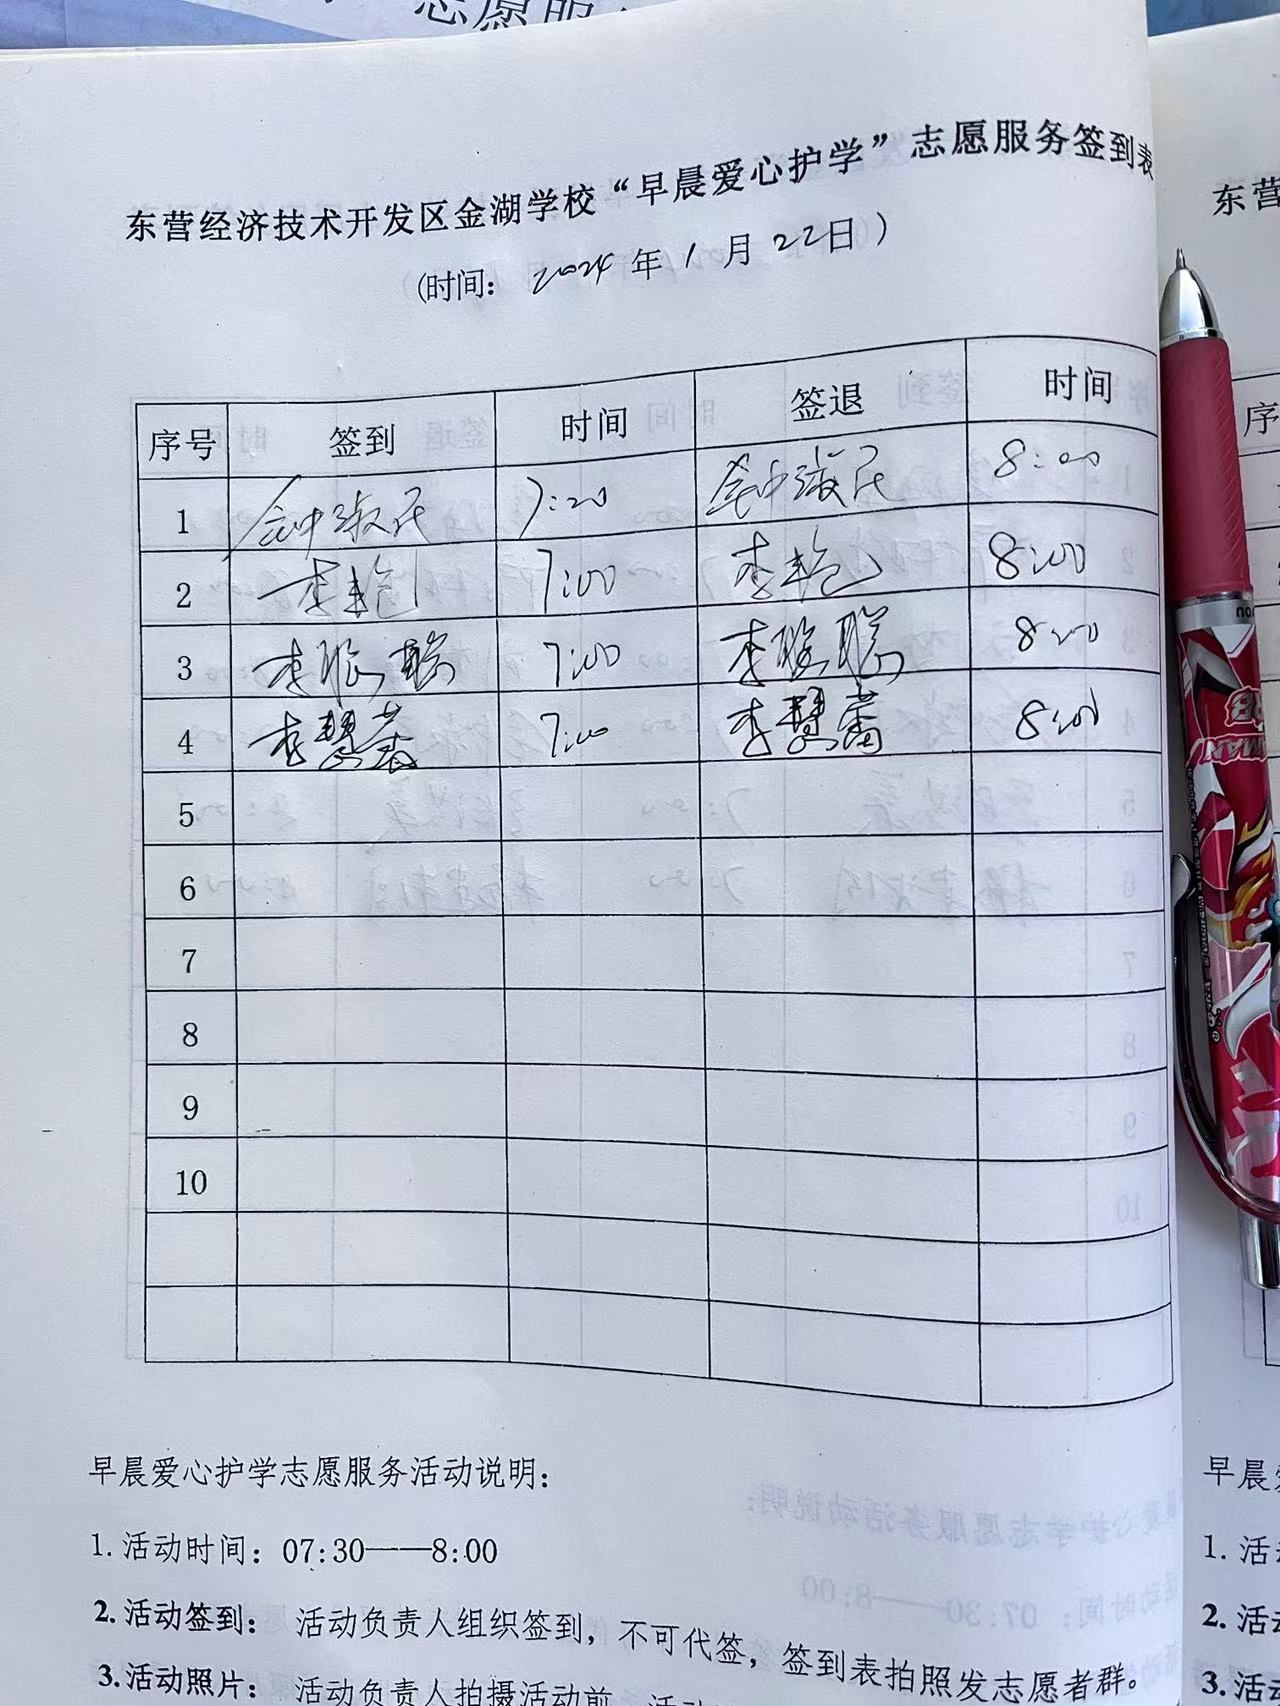 志愿服
东营经济技术开发区金湖学校“早晨爱心护学”志愿服务签到表
(时间: 2024 年 1 月 22 日)
序号 签到 时间 签退 时间
1 7:20 8:00
2 李艳 7:00 李艳 8:00
3 李 7:00 李 8:00
4 李慧蕾 7:00 李慧蕾 8:00
5
6
7
8
9
10
早晨爱心护学志愿服务活动说明:
1. 活动时间: 07:30——8:00
2. 活动签到: 活动负责人组织签到, 不可代签, 签到表拍照发志愿者群。
3. 活动照片: 活动负责人拍摄活动前
东营
序
早晨
1. 活
2. 活
3. 活